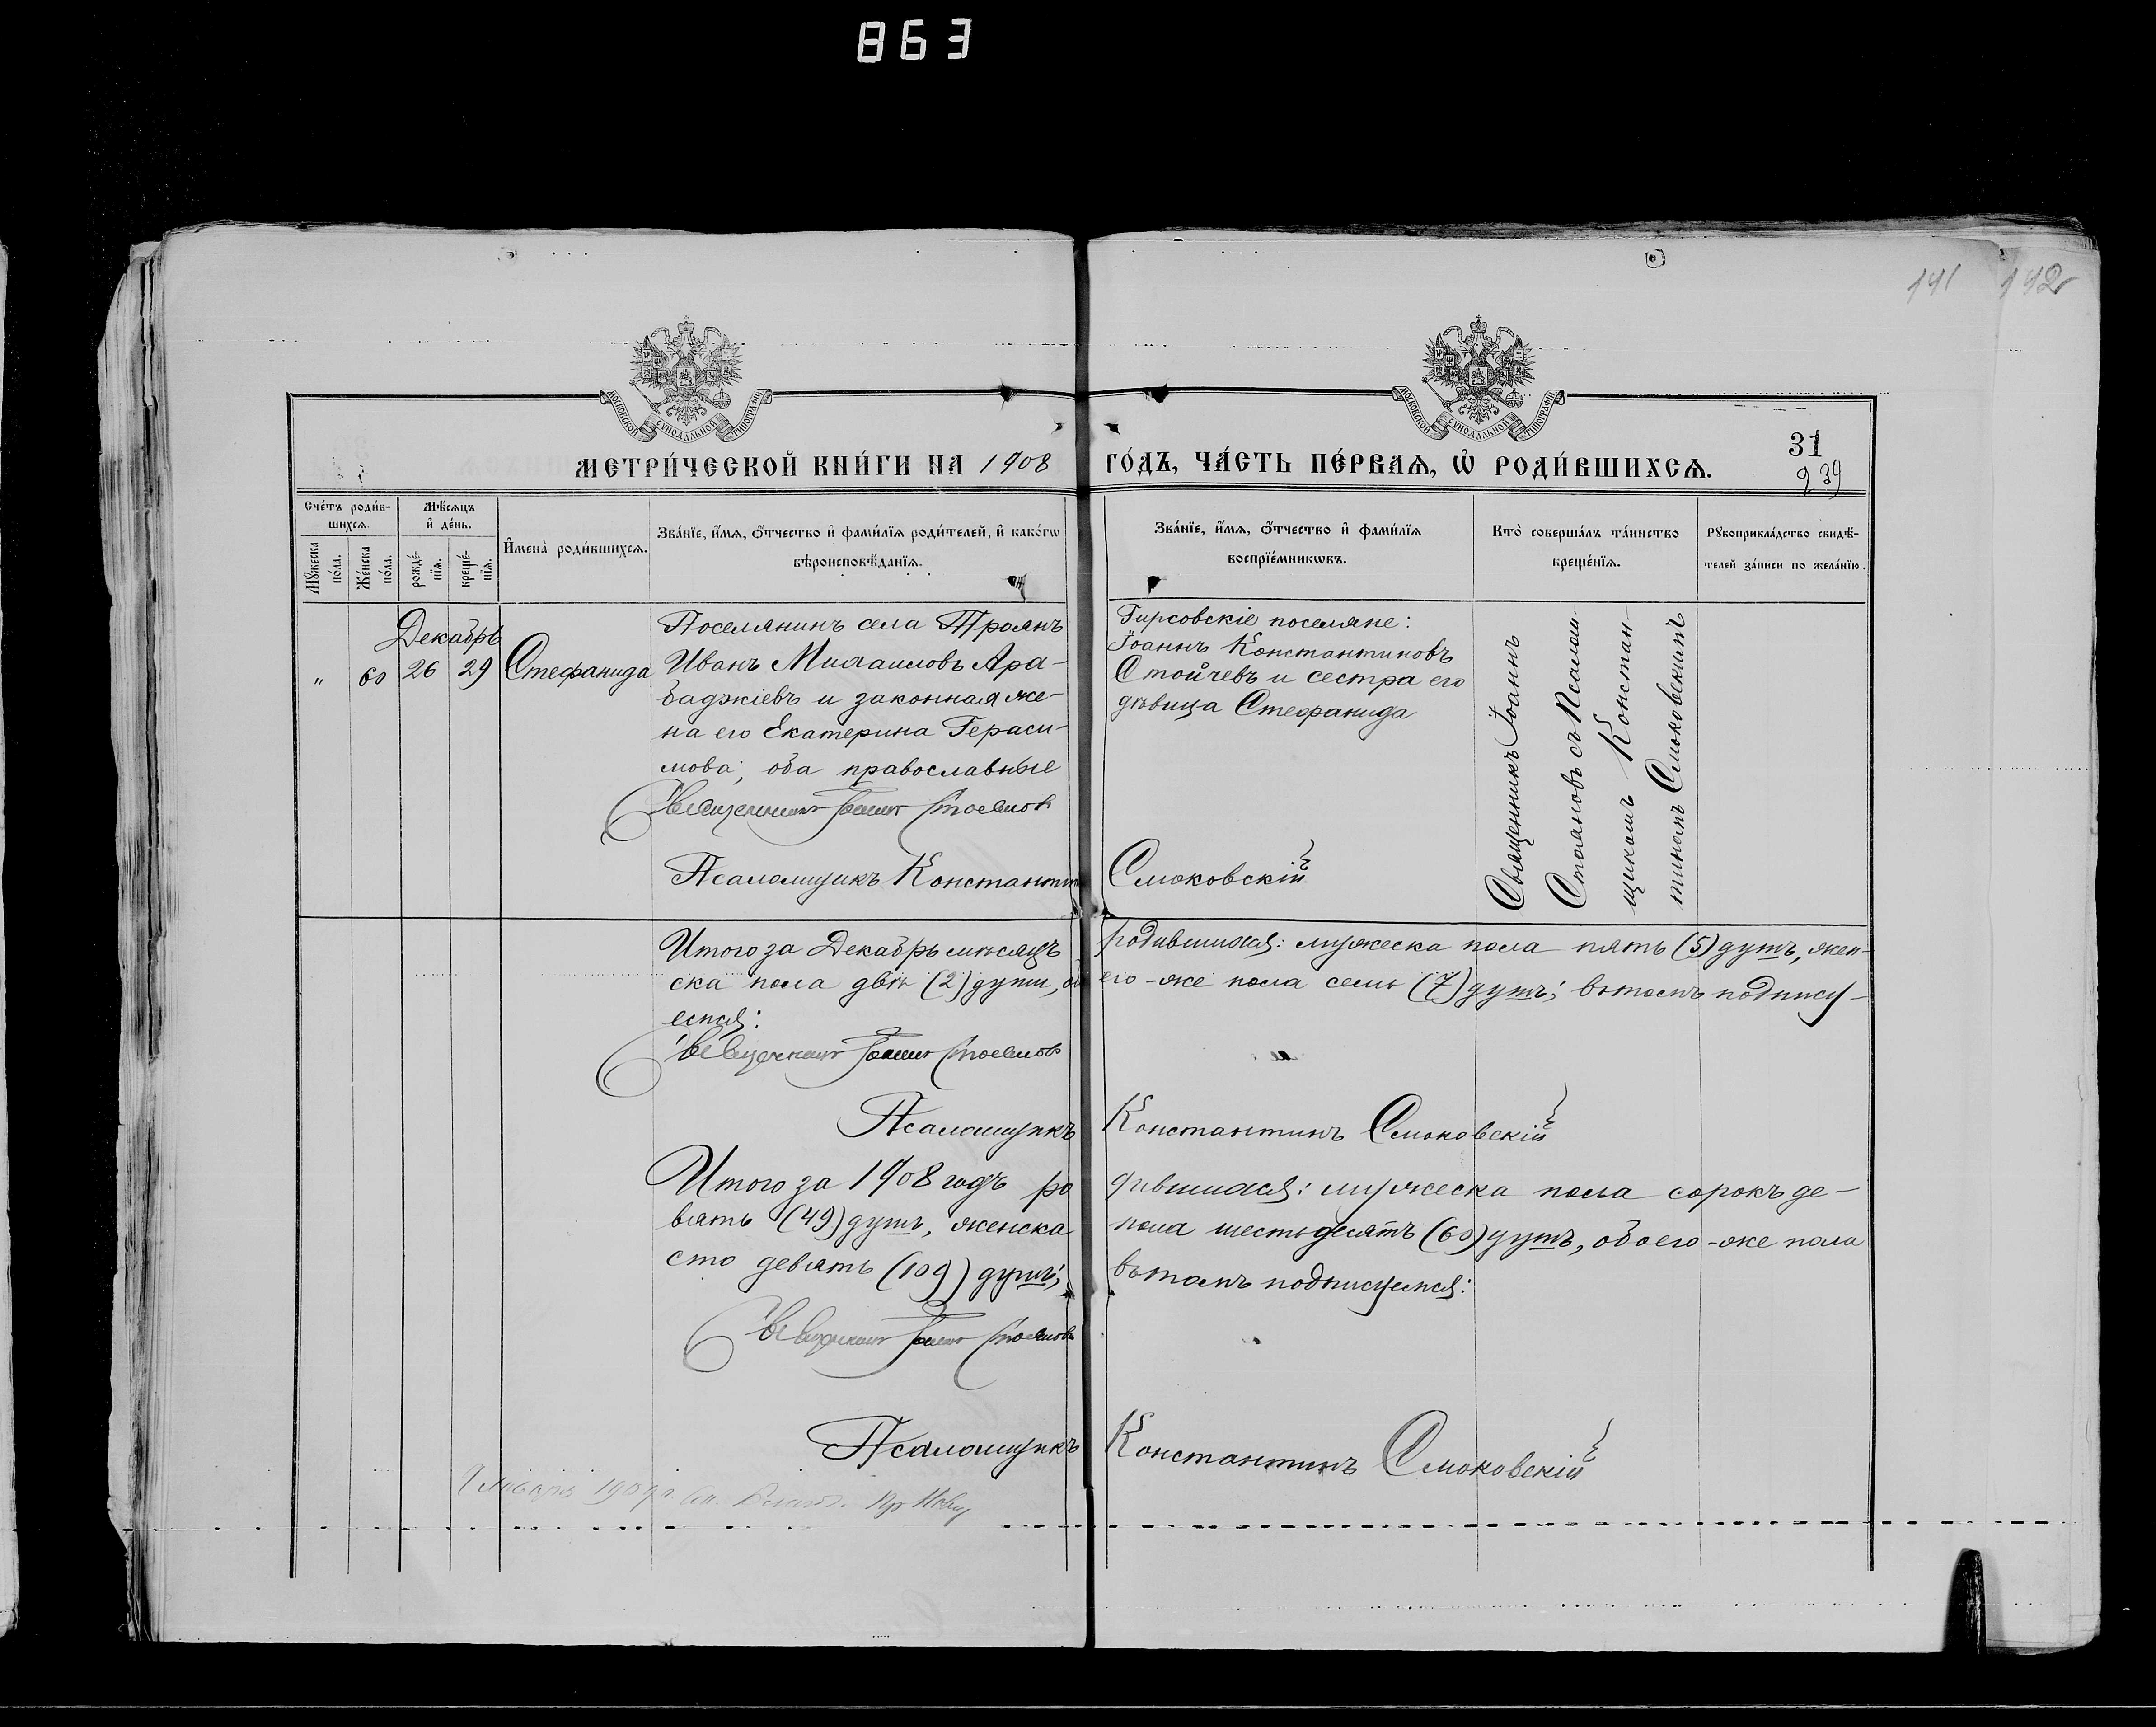 863
141 142
МОСКОВСКОЙ СѴНОДАЛЬНОЙ ТИПОГРАФІИ
МОСКОВСКОЙ СѴНОДАЛЬНОЙ ТИПОГРАФІИ
31
939
МЕТРИ́ЧЕСКОЙ КНИ́ГИ НА 1908 ГО́ДЪ, ЧА́СТЬ ПЕ́РВАѦ, Ѽ РОДИ́ВШИХСѦ.
Сче́тъ роди́в-
шихсѧ.
Мꙋ́жеска по́ла.
Же́нска по́ла.
Мѣ́сѧцъ
и҆ де́нь.
рожде́-нїѧ.
креще́-нїѧ.
И҆мена̀ роди́вшихсѧ.
Зва́нїе, и҆́мѧ, ѻ҆́тчество и҆ фами́лїѧ роди́телей, и҆ како́гѡ
вѣроисповѣ́данїѧ.
Зва́нїе, и҆́мѧ, ѻ҆́тчество и҆ фами́лїѧ
воспрїе́мникѡвъ.
Кто̀ соверша́лъ та́инство
креще́нїѧ.
Рꙋкоприкла́дство свидѣ́-
телей за́писи по жела́нїю.
Декабрь
" 60 26 29 Стефанида
Поселянинъ села Троянъ
Иванъ Михаиловъ Ара-
баджіевъ и законная же-
на его Екатерина Гераси-
мова, оба православные
Священникъ Іоаннъ Стояновъ
Псаломщикъ Константинъ Смоковскій
Гирсовскіе поселяне:
Іоаннъ Константиновъ
Стойчевъ и сестра его
дѣвица Стефанида
Священникъ Іоаннъ
Стояновъ съ Псалом-
щикомъ Констан-
тиномъ Смоковскимъ
Итого за Декабрь мѣсяцъ родившихся: мужеска пола пять (5) душъ, жен-
ска пола двѣ (2) души, обоего-же пола семь (7) душъ; въ томъ подпису-
емся:
Священникъ Іоаннъ Стояновъ
Псаломщикъ Константинъ Смоковскій
Итого за 1908 годъ родившихся: мужеска пола сорокъ де-
вять (49) душъ, женска пола шестьдесятъ (60) душъ, обоего-же пола
сто девять (109) душъ; въ томъ подписуемся:
Священникъ Іоаннъ Стояновъ
Псаломщикъ Константинъ Смоковскій
1909 г.